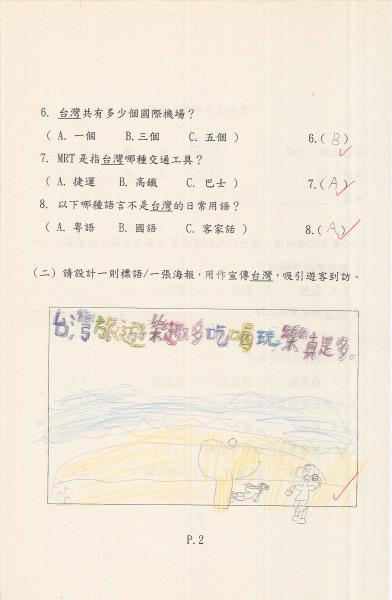 6. 台灣共有多少個國際機場？
( A. 一個 B.三個 C. 五個 ) 6.( B )
7. MRT 是指台灣哪種交通工具？
( A. 捷運 B. 高鐵 C. 巴士 ) 7.( A )
8. 以下哪種語言不是台灣的日常用語？
( A. 粵語 B. 國語 C. 客家話 ) 8.( A )
(二) 請設計一則標語/一張海報，用作宣傳台灣，吸引遊客到訪。
台灣旅遊樂趣多吃喝玩樂真是多。
P.2